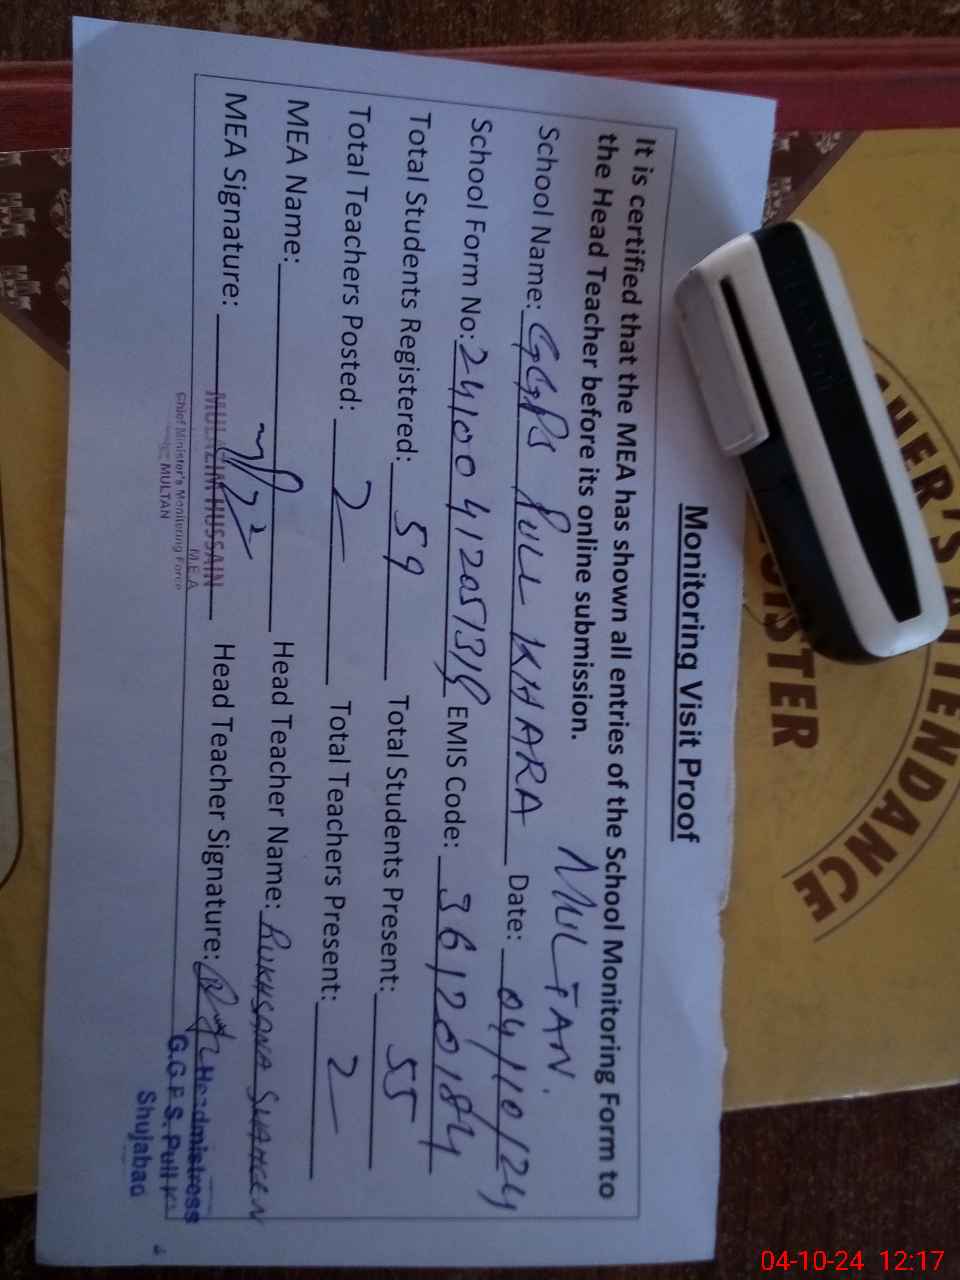 Monitoring Visit Proof
It is certified that the MEA has shown all entries of the School Monitoring Form to
the Head Teacher before its online submission.
MULTAN.
School Name: GGPS PULL KHARA Date: 04/10/24
School Form No: EMIS Code: 36120184
Total Students Registered: 59 Total Students Present: 55
Total Teachers Posted: 2 Total Teachers Present: 2
MEA Name: Head Teacher Name: RUKHSANA
MEA Signature: Head Teacher Signature:
MULAZIM HUSSAIN
M.E.A
Chief Minister's Monitoring Force
MULTAN
Headmistress
G.G.P.S. Pull
Shujabad
ATTENDANCE
REGISTER
04-10-24 12:17